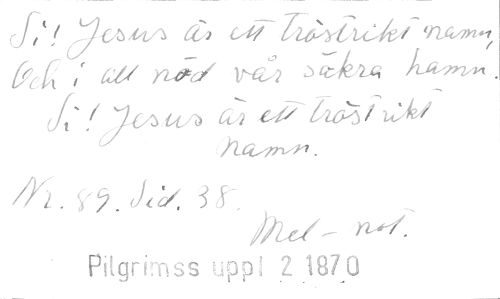 Si! Jesus är ett tröstrikt namn,
Och i all nöd vår säkra hamn.
Si! Jesus är ett tröstrikt
namn.
Nr. 89. Sid. 38.
Mel-not.
Pilgrimss uppl 2 1870